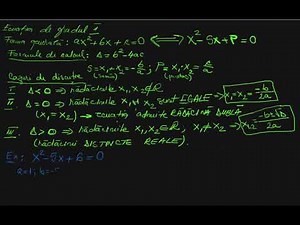 Ecuatia de gradul I
Forma generală: ax²+bx+c=0 ⟺ x²-Sx+P=0
Formule de calcul: Δ=b²-4ac
S=x₁+x₂=-b/a ; P=x₁·x₂=c/a
(suma) (produs)
Cazuri de discutie
I Δ<0 ⇒ rădăcinile x₁,x₂∉R
II Δ=0 ⇒ rădăcinile x₁,x₂ sunt EGALE → x₁=x₂=-b/2a
(x₁=x₂) → ecuatia admite RĂDĂCINĂ DUBLĂ
III Δ>0 ⇒ rădăcinile x₁,x₂∈R, x₁≠x₂ → x₁,₂=-b±√Δ/2a
(rădăcini DISTINCTE REALE).
Ex: x²-5x+6=0
a=1; b=-5